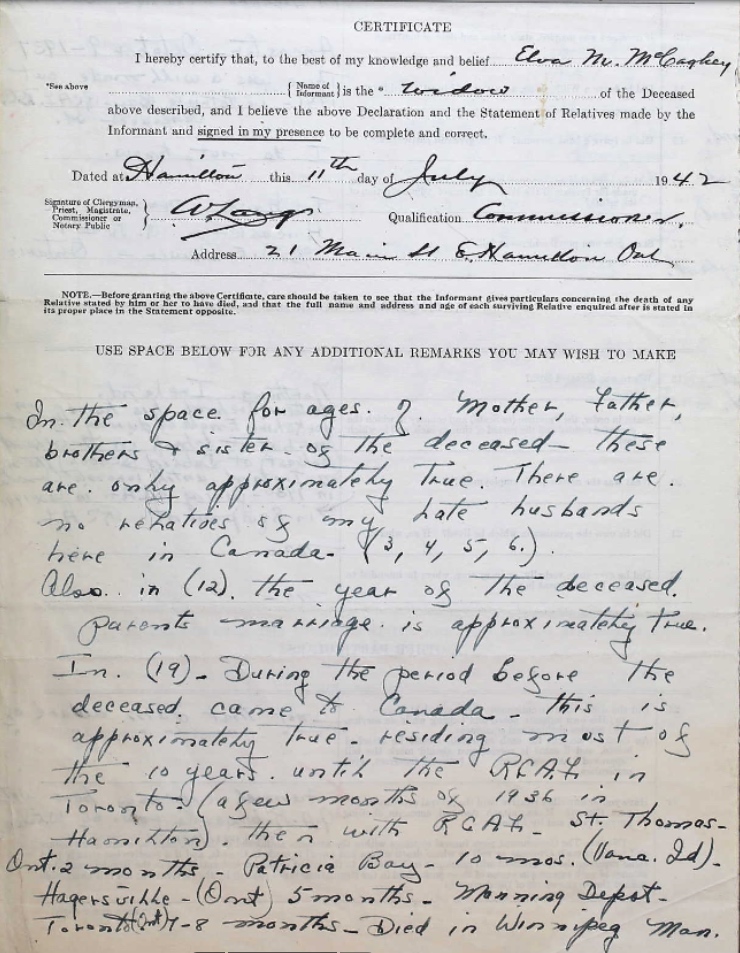 CERTIFICATE
I hereby certify that, to the best of my knowledge and belief Elva M. McCaghey
*See above { Name of Informant } is the * widow of the Deceased
above described, and I believe the above Declaration and the Statement of Relatives made by the
Informant and signed in my presence to be complete and correct.
Dated at Hamilton this 11th day of July 1942
Signature of Clergyman, Priest, Magistrate, Commissioner or Notary Public } Qualification Commissioner.
Address 21 Main St E. Hamilton Ont
NOTE.—Before granting the above Certificate, care should be taken to see that the Informant gives particulars concerning the death of any
Relative stated by him or her to have died, and that the full name and address and age of each surviving Relative enquired after is stated in
its proper place in the Statement opposite.
USE SPACE BELOW FOR ANY ADDITIONAL REMARKS YOU MAY WISH TO MAKE
In. the space. for ages. of. Mother, Father,
brothers & sister. of the deceased - these
are. only approximately true. There are.
no relatives of my late husbands
here in Canada - (3, 4, 5, 6.).
Also. in (12). the year of the deceased.
parents marriage. is approximately true.
In. (19) - During the period before the
deceased. came to Canada - this is
approximately true - residing most of
the 10 years. until the RCAF in
Toronto - (a few months of 1936 in
Hamilton). then with RCAF - St. Thomas -
Ont. 2 months - Patricia Bay - 10 mos. (Vanc. Id) -
Hagersville - (Ont) 5 months - Manning Depot -
Toronto (Ont) 7-8 months - Died in Winnipeg Man.